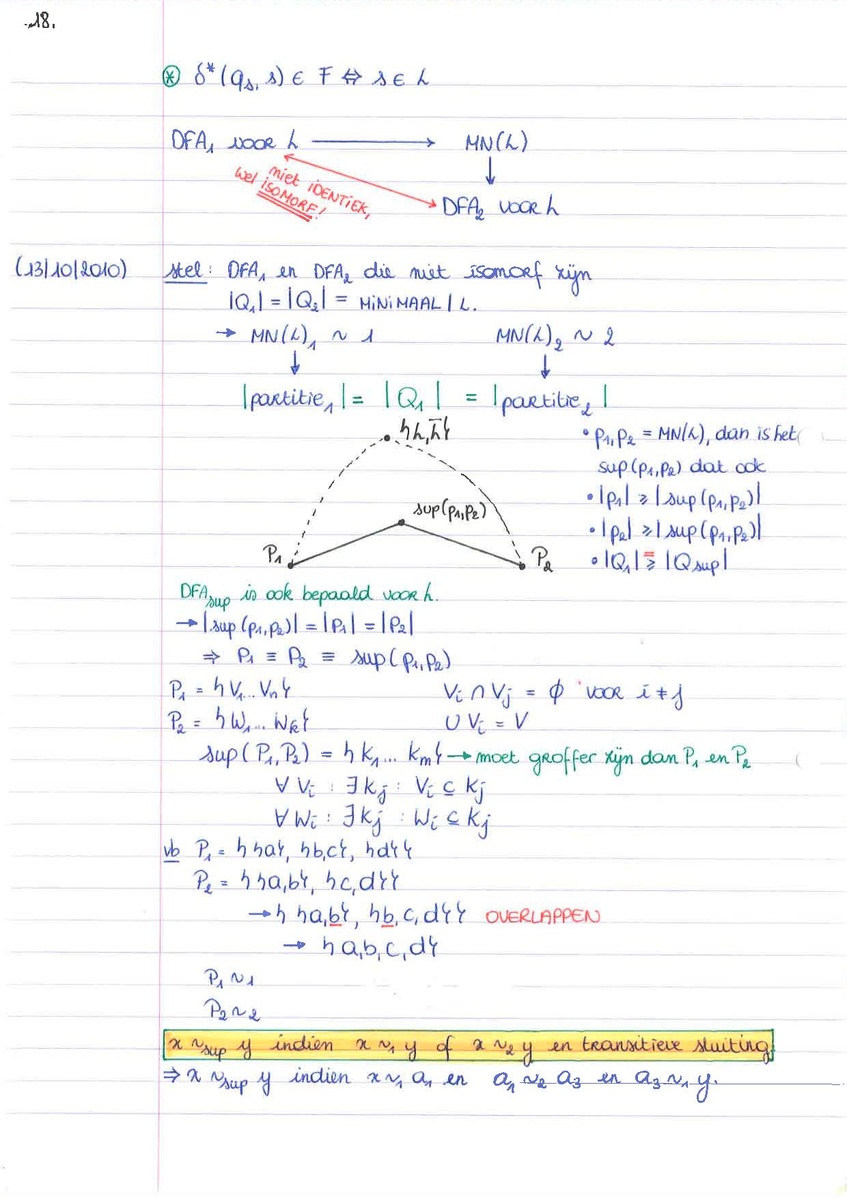 18.
⊛ δ*(qₛ, s) ∈ F ⇔ s ∈ L
DFA₁ voor L ⟶ MN(L)
↓
niet IDENTIEK,
wel ISOMORF!
DFA₂ voor L
(13/10/2010) stel: DFA₁ en DFA₂ die niet isomorf zijn
|Q₁| = |Q₂| = MiNiMAAL / L.
→ MN(L)₁ ~ 1 MN(L)₂ ~ 2
↓ ↓
|partitie₁| = |Q₁| = |partitie₂|
{L, L̅}
sup(p₁,p₂)
P₁ P₂
• p₁, p₂ = MN(L), dan is het
sup(p₁,p₂) dat ook
• |p₁| ≥ |sup(p₁,p₂)|
• |p₂| ≥ |sup(p₁,p₂)|
• |Q₁| = ≥ |Qsup|
DFAsup is ook bepaald voor L.
→ |sup(p₁,p₂)| = |P₁| = |P₂|
⇒ P₁ ≡ P₂ ≡ sup(p₁,p₂)
P₁ = {V₁...Vₙ} Vᵢ ∩ Vⱼ = ϕ voor i ≠ j
P₂ = {W₁...Wₖ} ∪ Vᵢ = V
sup(P₁,P₂) = {K₁...Kₘ} → moet groffer zijn dan P₁ en P₂
∀ Vᵢ : ∃ Kⱼ : Vᵢ ⊆ Kⱼ
∀ Wᵢ : ∃ Kⱼ : Wᵢ ⊆ Kⱼ
vb P₁ = {{a}, {b,c}, {d}}
P₂ = {{a,b}, {c,d}}
→ {{a,b}, {b,c,d}} OVERLAPPEN
→ {a,b,c,d}
P₁ ~₁
P₂ ~₂
x ~sup y indien x ~₁ y of x ~₂ y en transitieve sluiting
⇒ x ~sup y indien x ~₁ a₁ en a₁ ~₂ a₃ en a₃ ~₁ y.